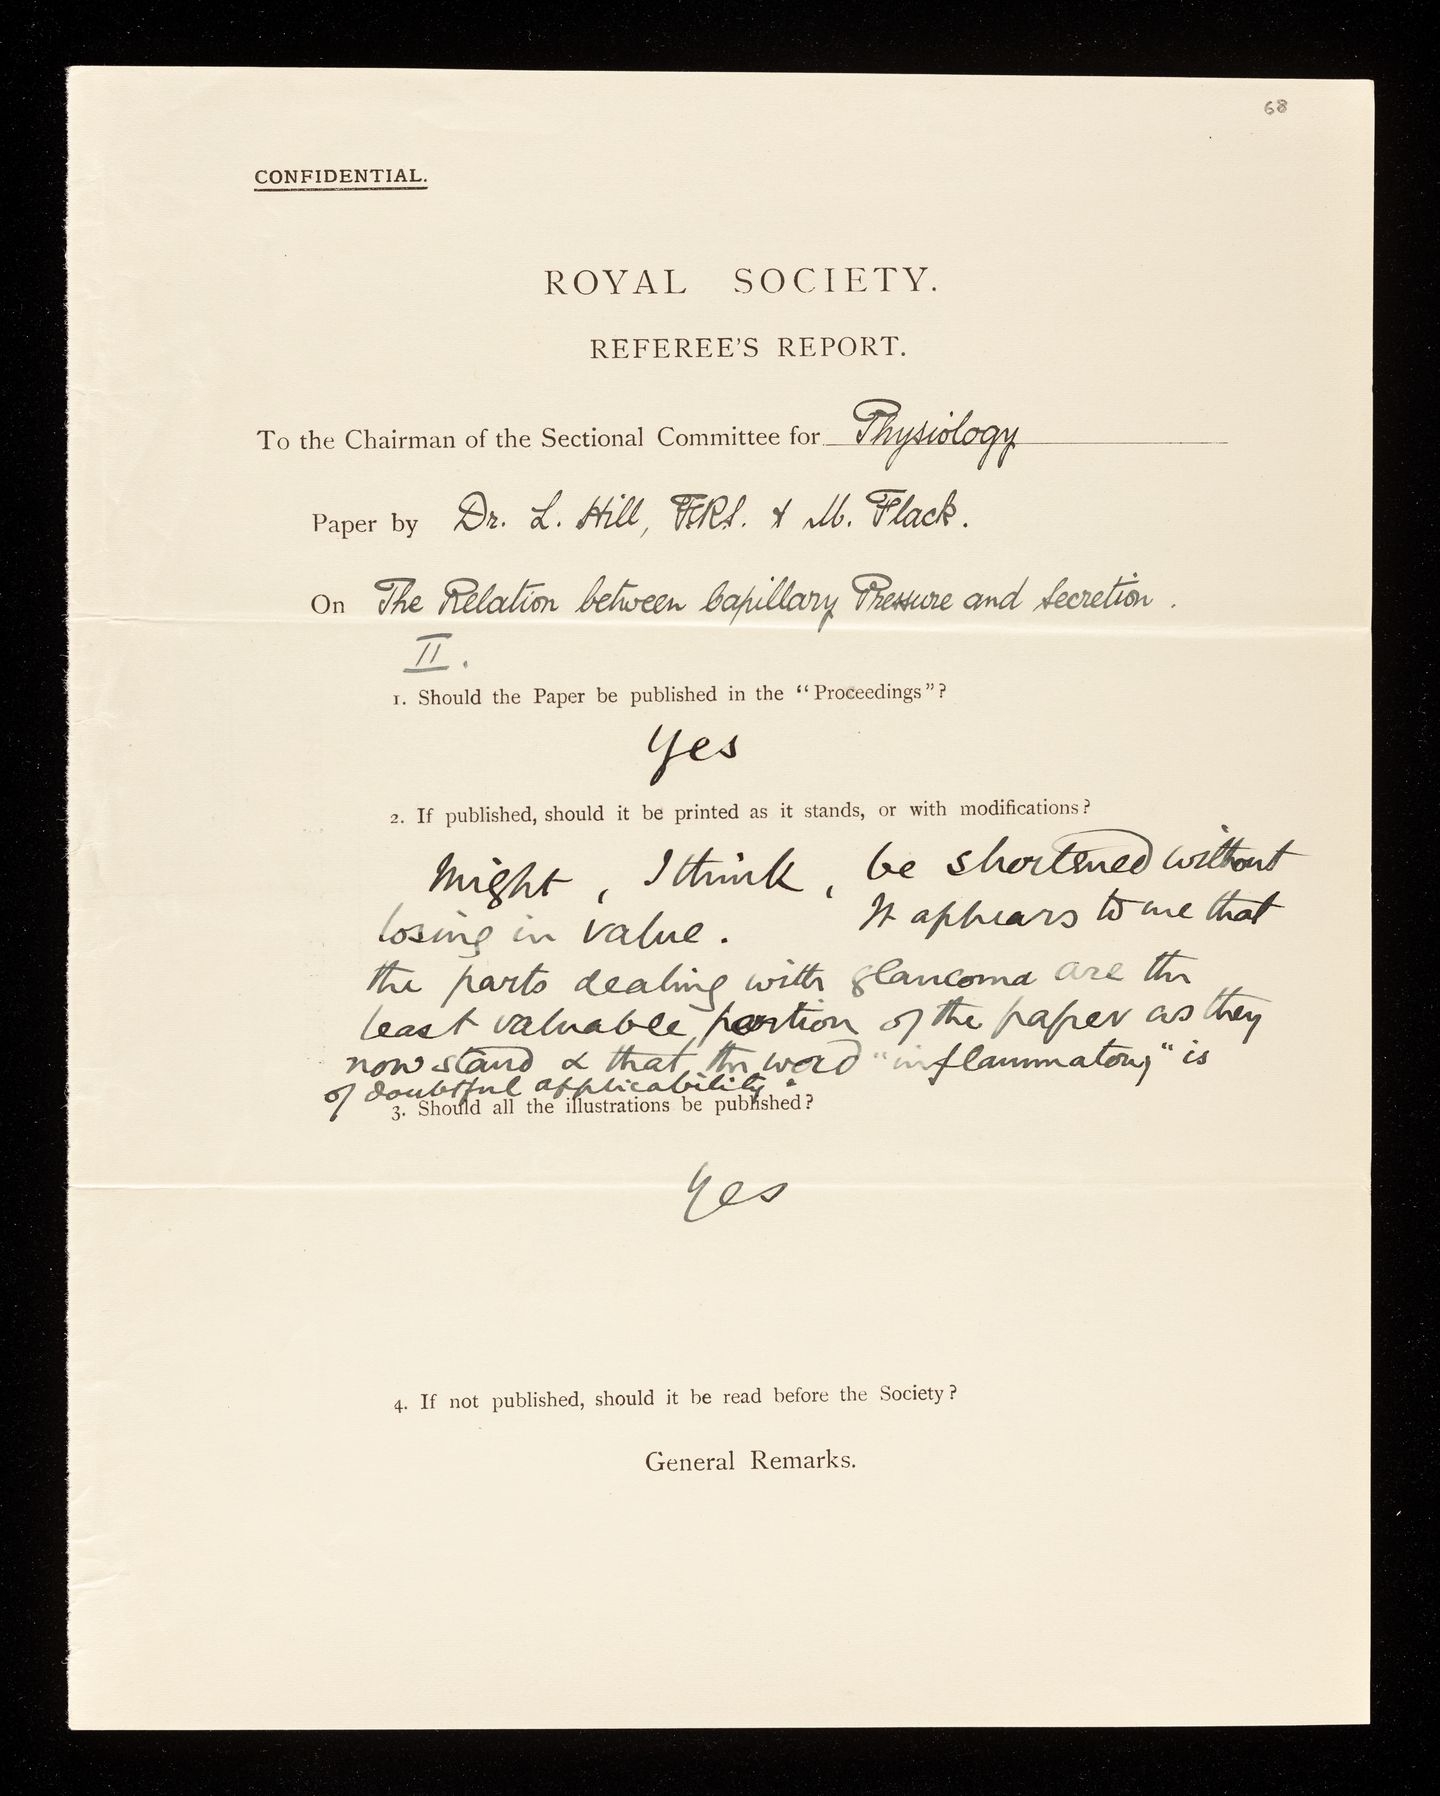 68
CONFIDENTIAL.
ROYAL SOCIETY.
REFEREE'S REPORT.
To the Chairman of the Sectional Committee for Physiology
Paper by Dr. L. Hill, F.R.S. & M. Flack.
On The Relation between Capillary Pressure and Secretion.
II.
1. Should the Paper be published in the "Proceedings"?
Yes
2. If published, should it be printed as it stands, or with modifications?
Might, I think, be shortened without
losing in value. It appears to me that
the parts dealing with glaucoma are the
least valuable portion of the paper as they
now stand & that the word "inflammatory" is
of doubtful applicability.
3. Should all the illustrations be published?
Yes
4. If not published, should it be read before the Society?
General Remarks.